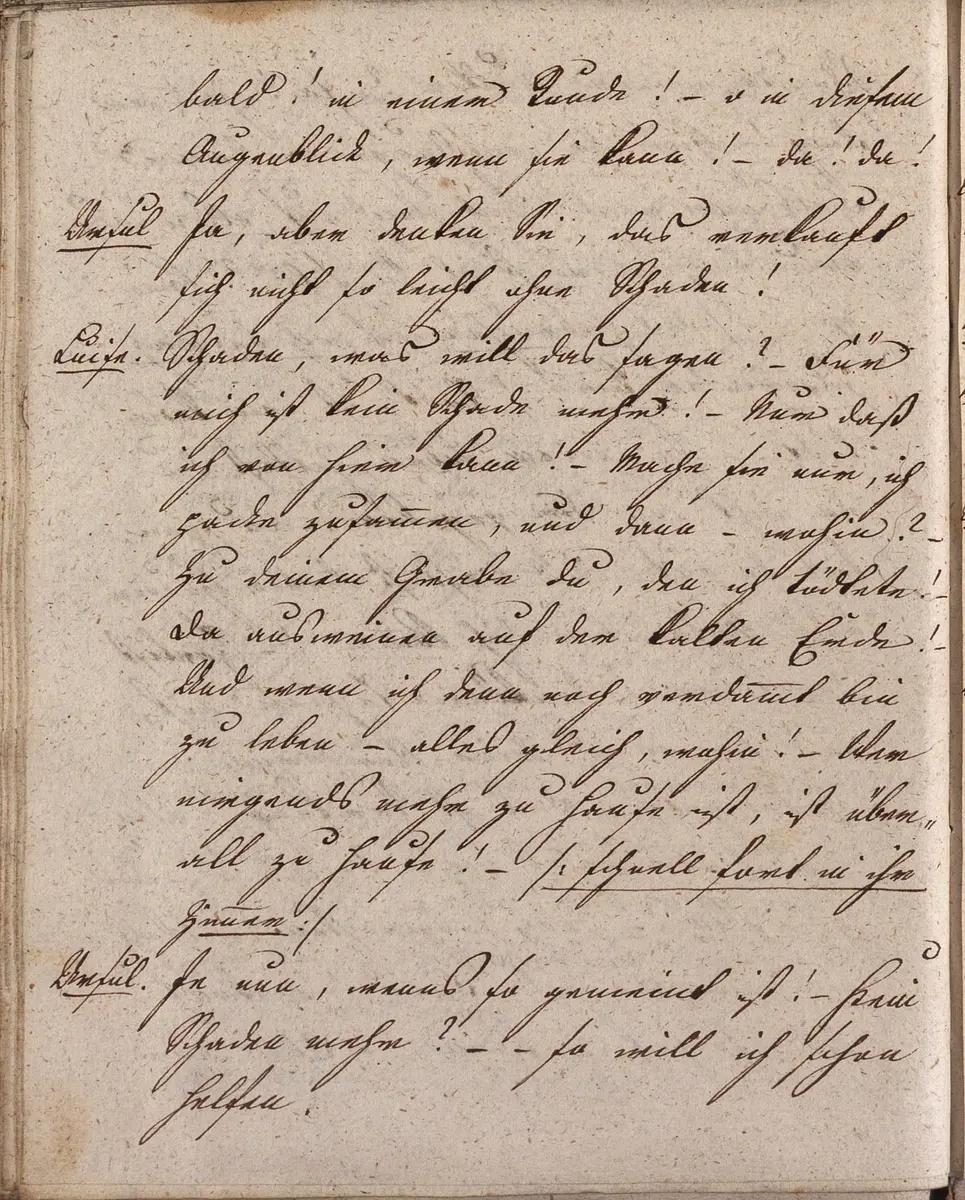 bald! in einer Stunde! – o in diesem
Augenblick, wenn sie kann! – da! da!
Ursul Ja, aber denken Sie, das verkauft
sich nicht so leicht ohne Schaden!
Luise. Schaden, was will das sagen? – Für
mich ist kein Schade mehr! – Nur daß
ich von hier kann! – Mache sie nur, ich
packe zusam̅en, und dann – wohin? –
Zu deinem Grabe du, den ich tödtete! –
Da ausweinen auf der kalten Erde! –
Und wenn ich denn noch verdam̅t bin
zu leben – alles gleich, wohin! – Wer
nirgends mehr zu Hause ist, ist über„
all zu Hause! – /: schnell fort in ihr
Zim̅er :/
Ursul. Je nun, wenns so gemeint ist! – Kein
Schaden mehr? – – so will ich schon
helfen.